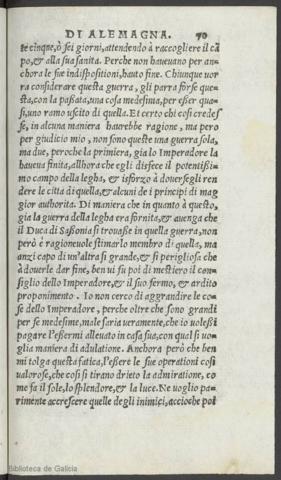 DI ALEMAGNA. 70
te cinque, ò sei giorni, attendendo à raccogliere il cã
po, & alla sua sanita. Perche non haueuano per an-
chora le sue indispositioni, hauto fine. Chiunque vor
ra considerare questa guerra, gli parra forse que-
sta, con la passata, una cosa medesima, per esser qua-
si, uno ramo uscito di quella. Et certo chi cosi credes
se, in alcuna maniera haurebbe ragione, ma pero
per giudicio mio, non sono queste una guerra sola,
ma due, peroche la primiera, gia lo Imperadore la
haueua finita, allhora che egli disfece il potentissi-
mo campo della legha, & isforzò à douersegli ren
dere le citta di quella, & alcuni de i principi di mag
gior authorita. Di maniera che in quanto à questo,
gia la guerra della legha era fornita, & auenga che
il Duca di Sassonia si trouasse in quella guerra, non
però è ragioneuole stimarlo membro di quella, ma
anzi capo di un'altra si grande, & si perigliosa che
à douerle dar fine, ben ui fu poi di mestiero il con-
siglio dello Imperadore, & il suo fermo, & ardito
proponimento. Io non cerco di aggrandire le co-
se dello Imperadore, perche oltre che sono grandi
per se medesime, male saria ueramente, che io uolessi
pagare l'essermi alleuato in casa sua, con qual si uo-
glia maniera di adulatione. Anchora però che ben
mi tolga questa fatica, l'essere le sue operationi cosi
ualorose, che cosi si tirano drieto la admiratione, co
me fa il sole, lo splendore, & la luce. Ne uoglio pa-
rimente accrescere quelle degli inimici, accioche poi
Biblioteca de Galicia